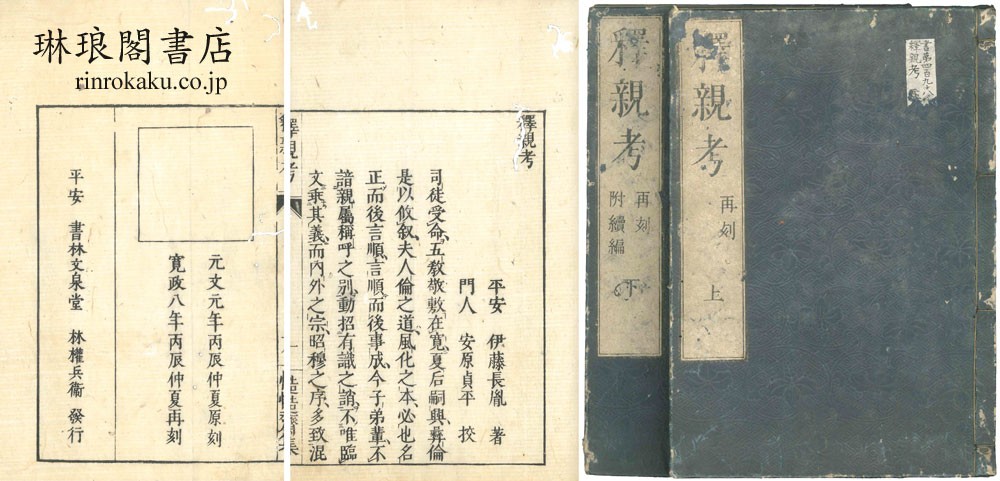 琳琅閣書店
rinrokaku.co.jp
釋親考
平安 伊藤長胤 著
門人 安原貞平 挍
司徒受命五敎敬敷在寛夏后嗣興彛倫
是以攸叙夫人倫之道風化之本必也名
正而後言順言順而後事成今子弟輩不
諳親屬稱呼之別動招有識之誚不唯臨
文乖其義而内外之宗昭穆之序多致混
釋親考
元文元年丙辰仲夏原刻
寛政八年丙辰仲夏再刻
平安 書林文泉堂 林權兵衞 發行
釋親考 再刻 上
釋親考
再刻
附續編
下
書第四百九十八
釋親考